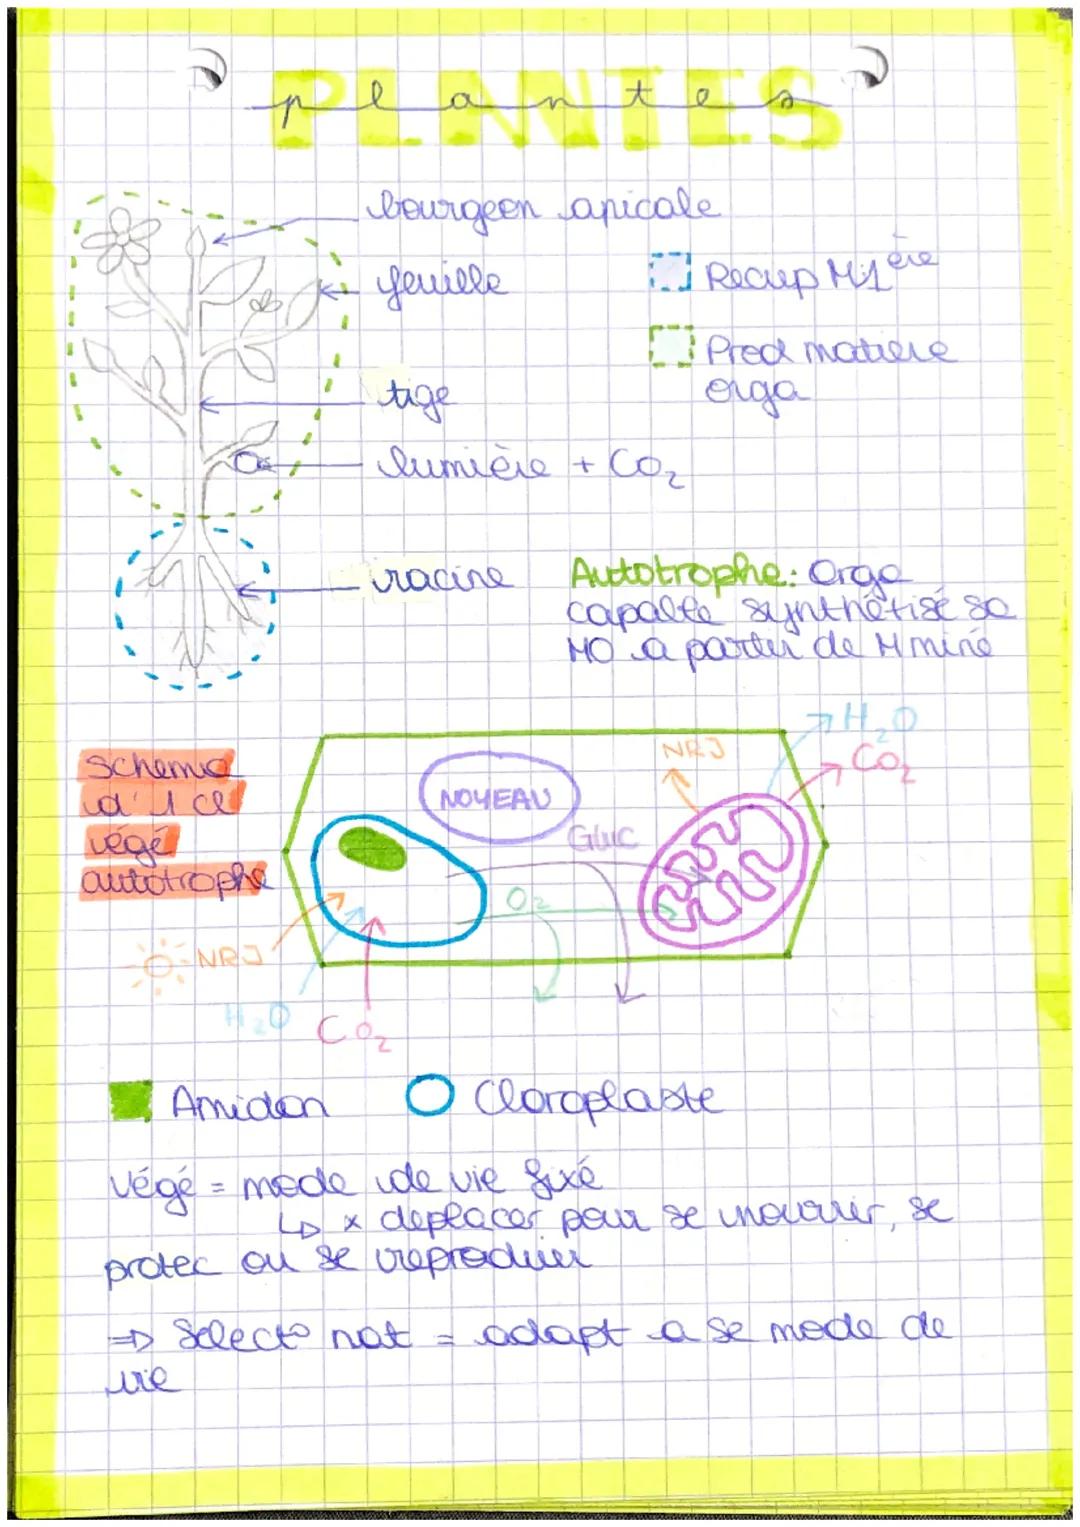 PLANTES
plantes
bourgeon apicale
feuille
Recup M1ère
Prod matiere
orga
tige
lumière + CO2
racine
Autotrophe: Orga
capable synthétisé sa
MO a partir de M miné
Schema
d'1 cl
végé
autotrophe
NOYEAU
NRJ
H2O
CO2
Gluc
O2
NRJ
H2O
CO2
Amidon
Cloroplaste
Végé = mode de vie fixé
↳ x deplacer pour se nourrir, se
protec ou se reproduire
⇒ Selecto nat = adapt a se mode de
vie